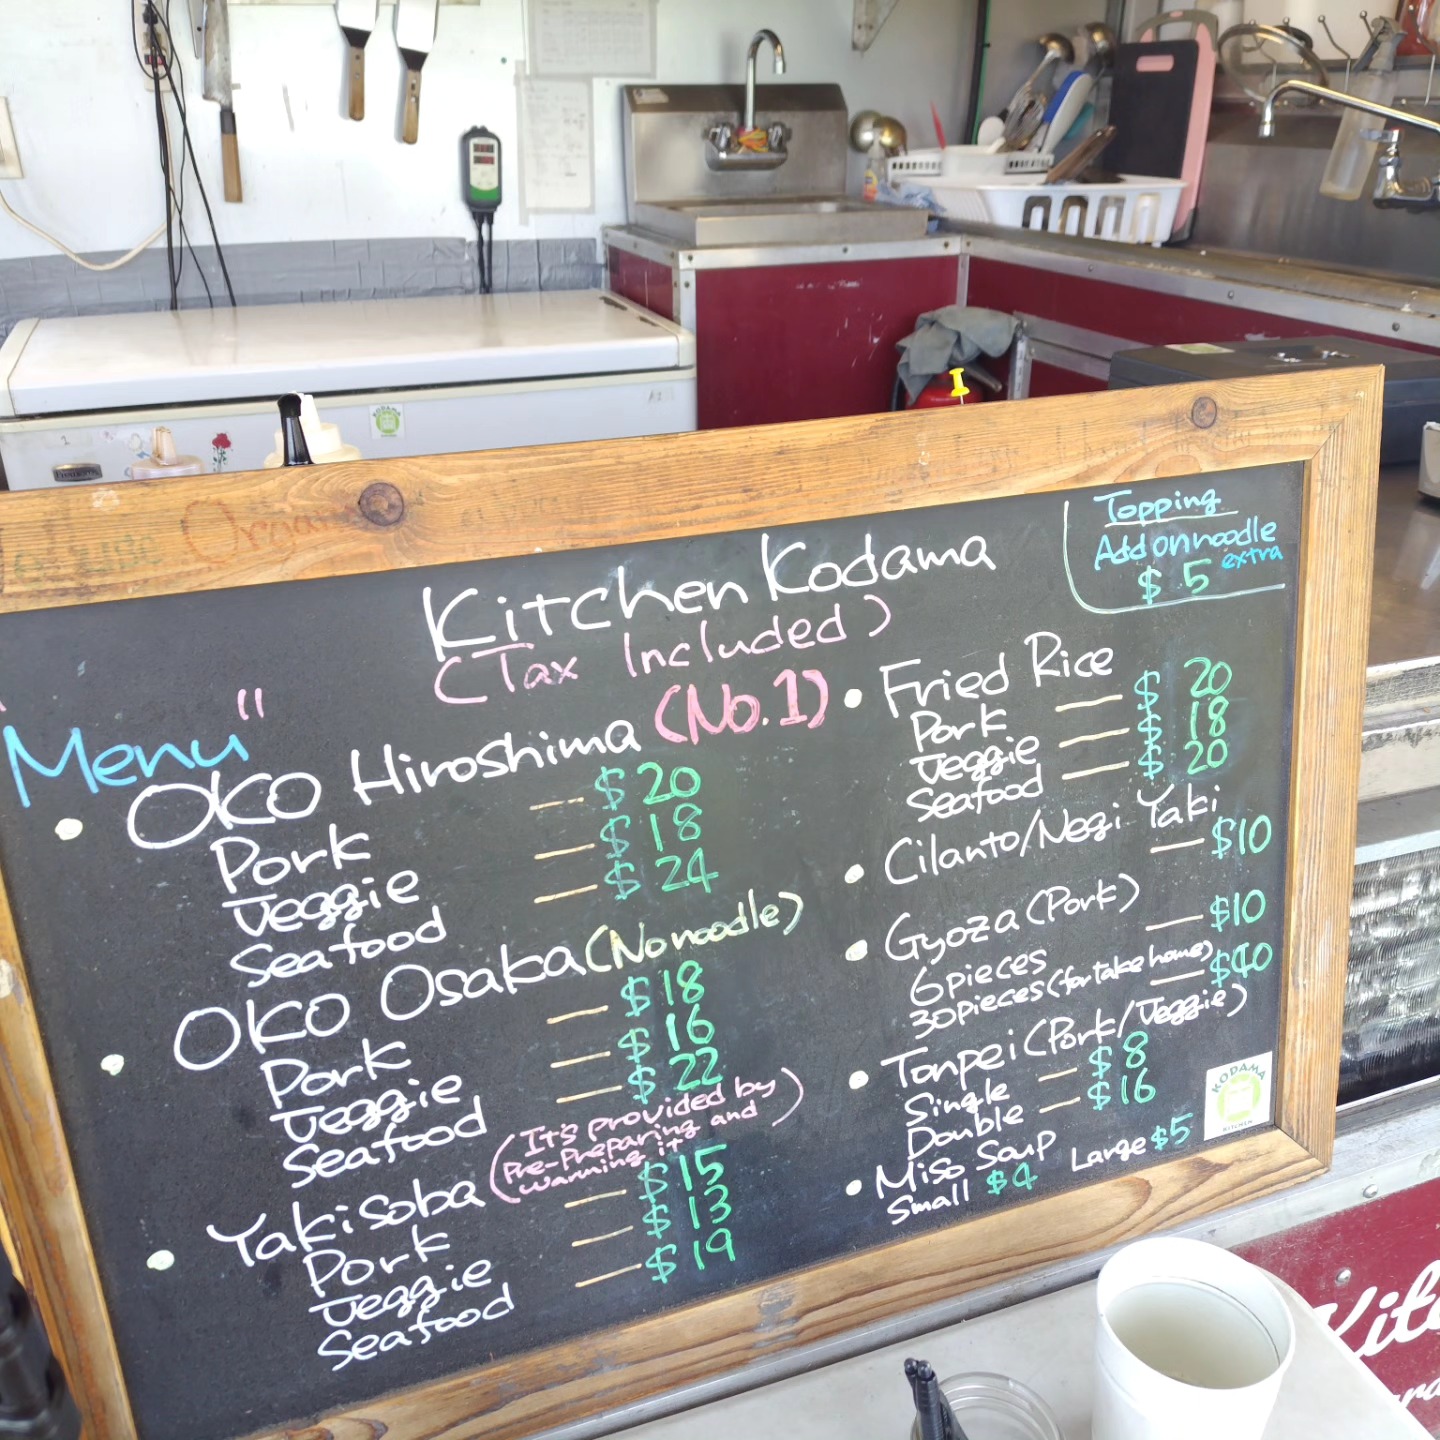 Kitchen Kodama
(Tax Included)
"Menu"
OKO Hiroshima (No.1)
Pork — $20
Veggie — $18
Seafood — $24
OKO Osaka (No noodle)
Pork — $18
Veggie — $16
Seafood — $22
Yakisoba (It's provided by
Pre-Preparing and
warming it)
Pork — $15
Veggie — $13
Seafood — $19
Topping
Add on noodle
$5 extra
Fried Rice
Pork — $20
Veggie — $18
Seafood — $20
Cilanto/Negi Yaki
— $10
Gyoza (Pork)
6 pieces — $10
30 pieces (for take home) — $40
Tonpei (Pork/Veggie)
Single — $8
Double — $16
Miso Soup
Small $4 Large $5
KODAMA
KITCHEN
KODAMA